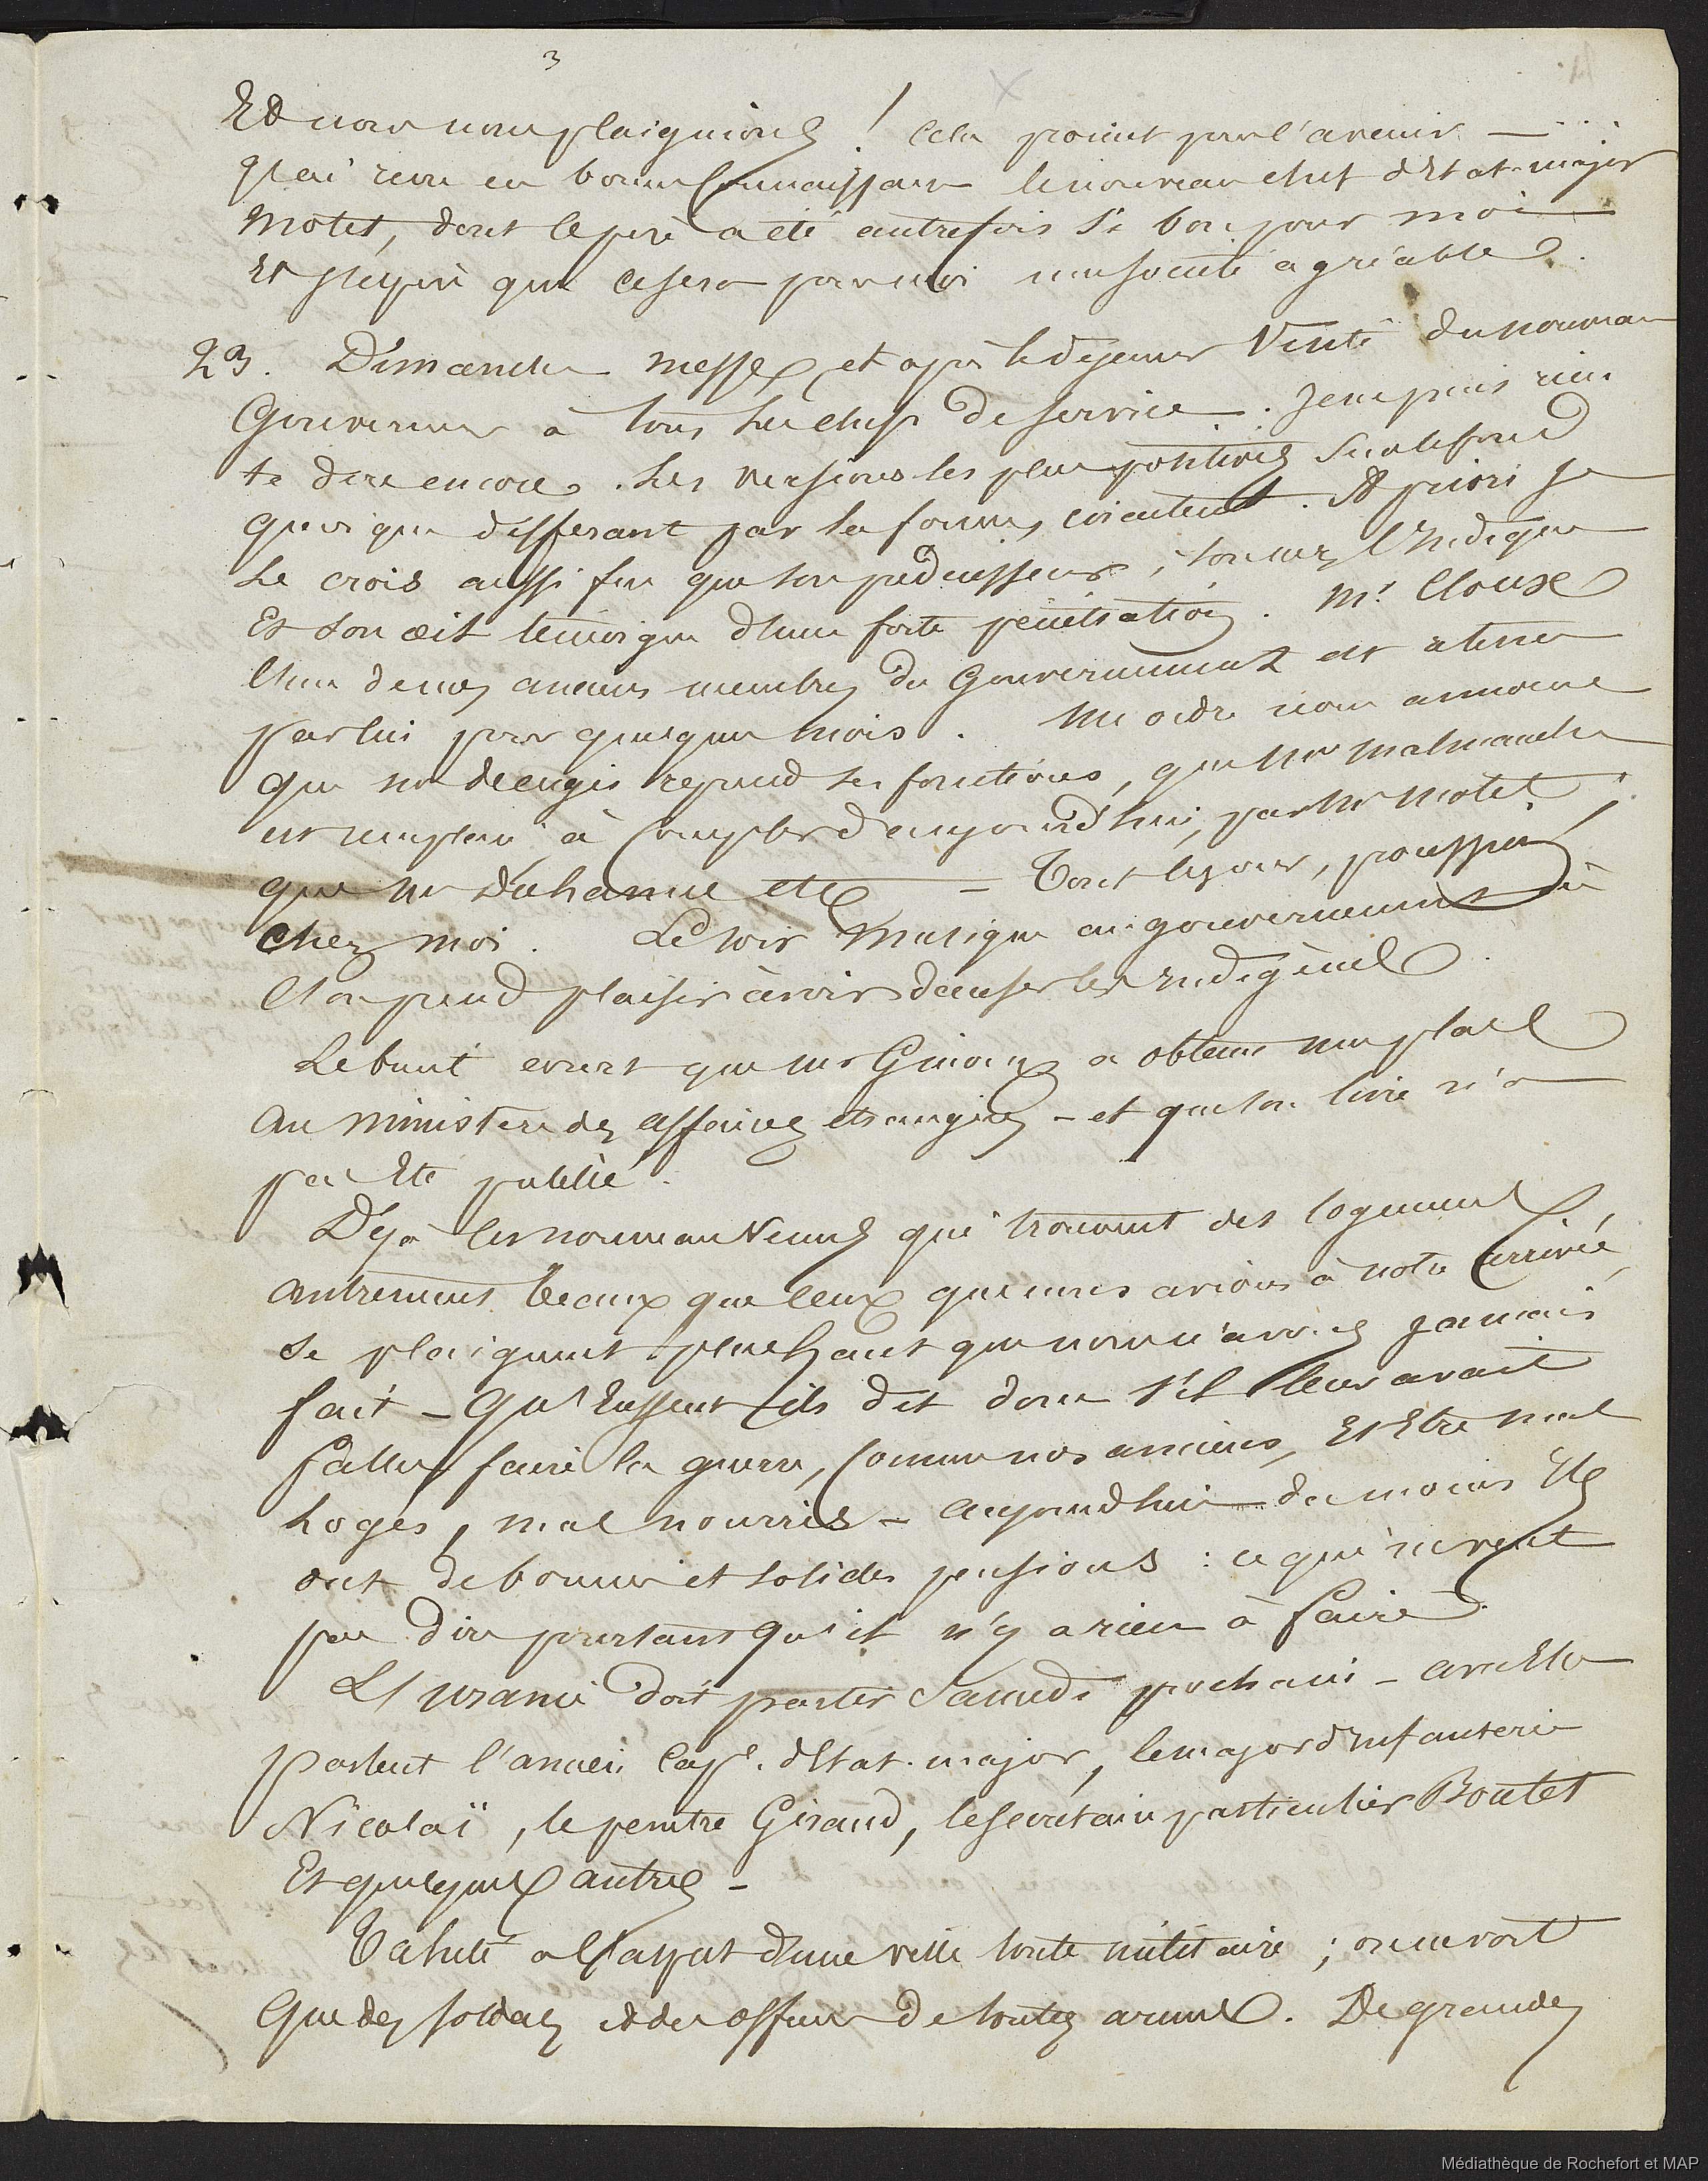 3
Et nous nous plaignions ! Cela promet pour l'avenir —
J'ai revu en bonne connaissance le nouveau chef d'Etat-major
Motet, dont le père a été autrefois si bon pour moi
Et j'espère que ce sera pour moi une société agréable.
23. Dimanche messe, et après le déjeuner Visite du nouveau
Gouverneur à tous les chefs de service. Je ne puis rien
te dire encore. Les versions les plus positives sur le fond
quoique differant par la forme, circulent. A priori je
Le crois aussi fin que son prédécesseur ; son nez l'indique
Et son œil témoigne d'une forte pénétration. Mr. Cloux
L'un de nos anciens membres du Gouvernement est retenu
par lui pour quelques mois. Un ordre nous annonce
que mr reprend ses fonctions, que Mr Malmanche
est remplacé à compter d'aujourd'hui, par Mr Motet
que Mr Duhamel etc — Tout le jour, poussière
chez moi. Le soir Musique au gouvernement où
l'on prend plaisir à voir danser les Indigènes.
Le bruit court que mr Ginoux a obtenu une place
au Ministere des affaires etrangères - et que son livre n'a
pas Eté publié.
Déja les nouveau Venus qui trouvent des logements
autrement beaux que ceux que nous avions à notre arrivée,
se plaignent plus haut que nous n'avons jamais
fait - Qu'Eussent ils dit donc s'il leur avait
fallu faire la guerre, comme nos anciens, Et Etre mal
Logés, mal nourris - aujourdhui du moins ils
ont de bonnes et solides pensions : ce qui ne veut
pas dire pourtant qu'il n'y a rien à faire.
L'Uranie doit partir Samedi prochain - avec Elle
partent l'ancien Cape. d'Etat-major, le major d'Infanterie
Nicolaï, le peintre Giraud, le secrétaire particulier Boutet
Et quelques autres -
Tahiti a l'aspect d'une ville toute militaire ; on ne voit
que des soldats et des officiers de toutes armes. De grandes
Médiathèque de Rochefort et MAP